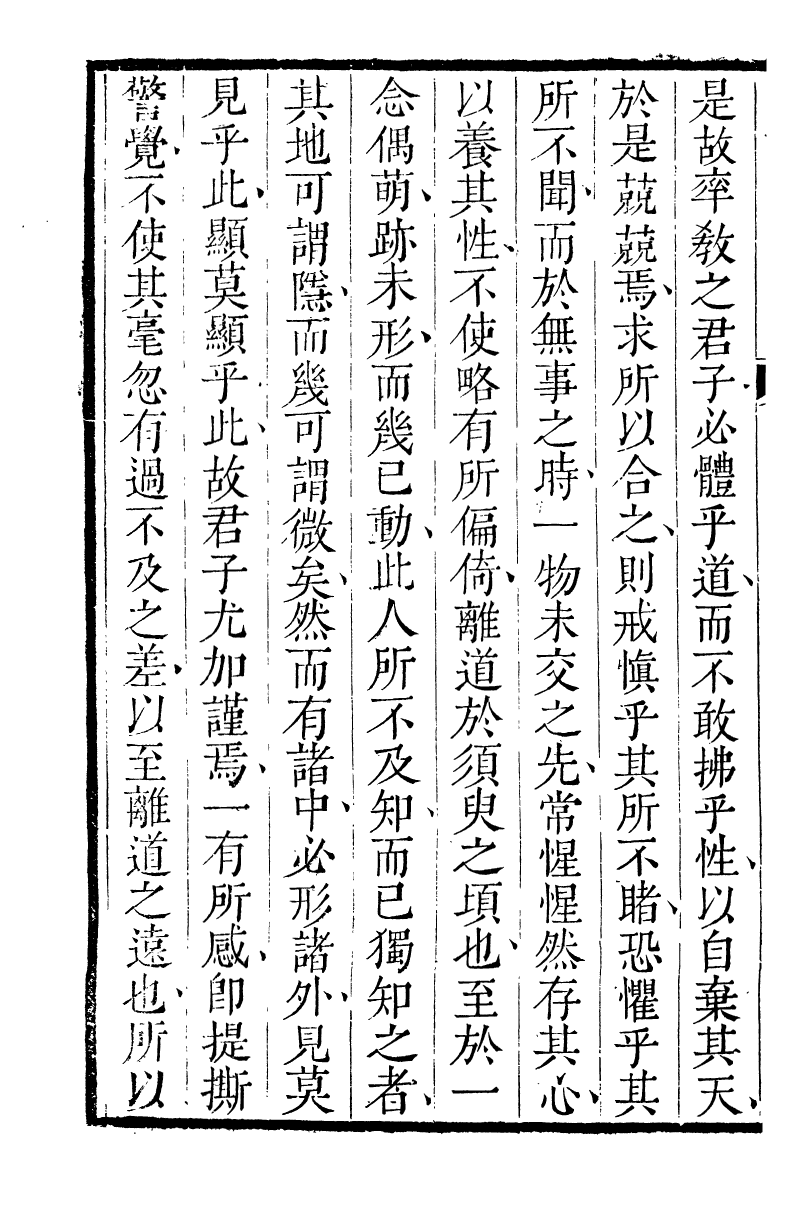 是故率敎之君子必體乎道、而不敢拂乎性、以自棄其天、
於是兢兢焉、求所以合之、則戒愼乎其所不睹、恐懼乎其
所不聞、而於無事之時、一物未交之先、常惺惺然存其心、
以養其性、不使略有所偏倚、離道於須臾之頃也、至於一
念偶萌、跡未形、而幾已動、此人所不及知、而已獨知之者、
其地可謂隱、而幾可謂微矣、然而有諸中、必形諸外、見莫
見乎此、顯莫顯乎此、故君子尤加謹焉、一有所感、卽提撕
警覺、不使其毫忽有過不及之差、以至離道之遠也、所以